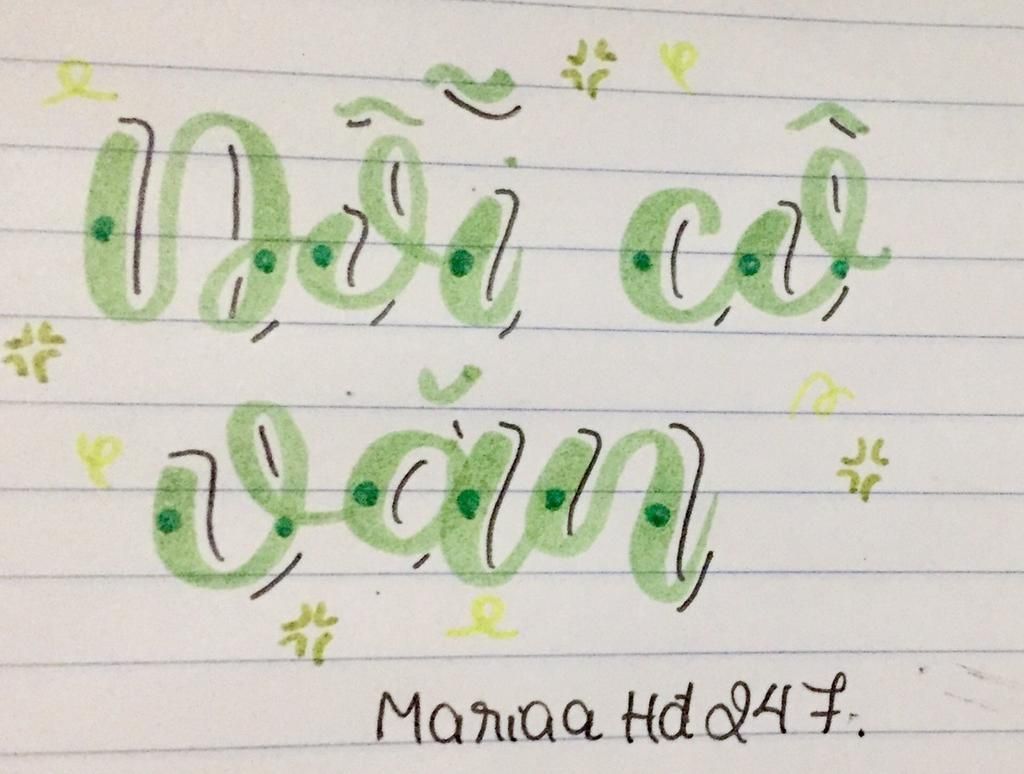 Nỗi cô
văn
Mariaa Hđ 247.